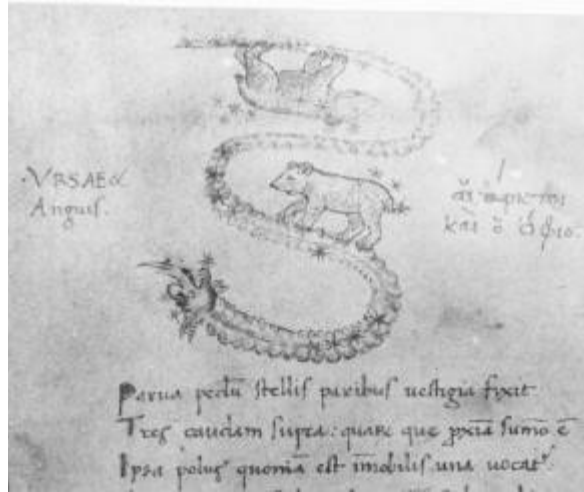 ·VRSAE &
Anguis.
αἱ ἄρκτοι
καὶ ὁ ὄφις·
Parua pedū stellis paribus uestigia fixit
Tres caudam supra: quare que pxīa sumō ē
Ipsa polus quoniā est īmobilis una uocat